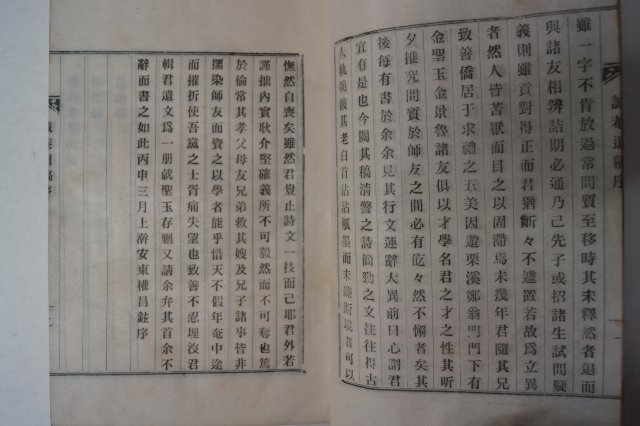 雖一字不肯放過常問質至移時其未釋然者退而
與諸友相辨詰期必通乃已先子或招諸生試問疑
義則雖貢對得正而君猶斷々不遽置若故爲立異
者然人皆苦厭而目之以固滯焉未幾年君隨其兄
致善僑居于求禮之五美因遊栗溪鄭翁門門下有
金聖玉金景魯諸友俱以才學名君之才之性其昕
夕推究問質於師友之間必有矻々然不懈者矣其
後每有書於余余見其行文運辭大異前日心謂君
宜有是也今閱其稿淸警之詩簡勁之文往往得古
人軌範彼其老白首沾沾觚墨而未臻斯境者可以
憮然自喪矣雖然君豈止詩文一技而已耶君外若
謹拙內實耿介堅確義所不可毅然而不可奪也篤
於倫常其孝父母友兄弟救其嫂及兄子諸事皆非
擩染師友而資之以學者能乎惜天不假年奄中途
而摧折使吾黨之士胥痛失望也致善不忍理沒君
輯君遺文爲一册就聖玉存刪又請余弁其首余不
辭而書之如此丙申三月上澣安東權昌鉉序